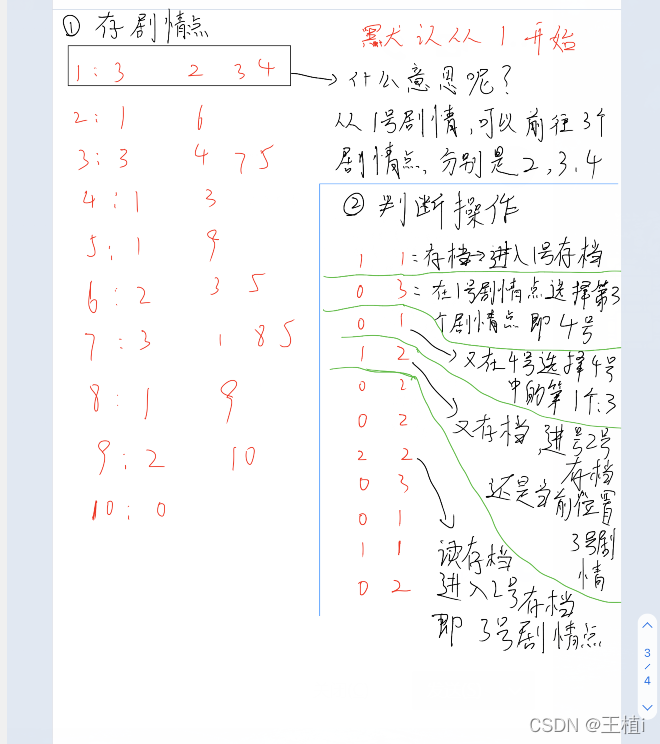 ① 存剧情点
默认从1开始
1：3 2 3 4
什么意思呢？
从1号剧情，可以前往3个
剧情点、分别是2,3、4
2：1 6
3：3 4 7 5
4：1 3
5；1 9
6：2 3 5
7：3 1 8 5
8：1 9
9；2 10
10；0
② 判断操作
1 1：存档→进入1号存档
0 3：在1号剧情点选择第3
个剧情点即4号
0 1
又在4号选择4号
中的第1个：3
1 2
又存档，进号2号
存档
还是当前位置
3号剧
情
0 2
0 2
2 2
读存档
进入2号存档
即3号剧情点
0 3
0 1
1 1
0 2
3
4
CSDN @王植i